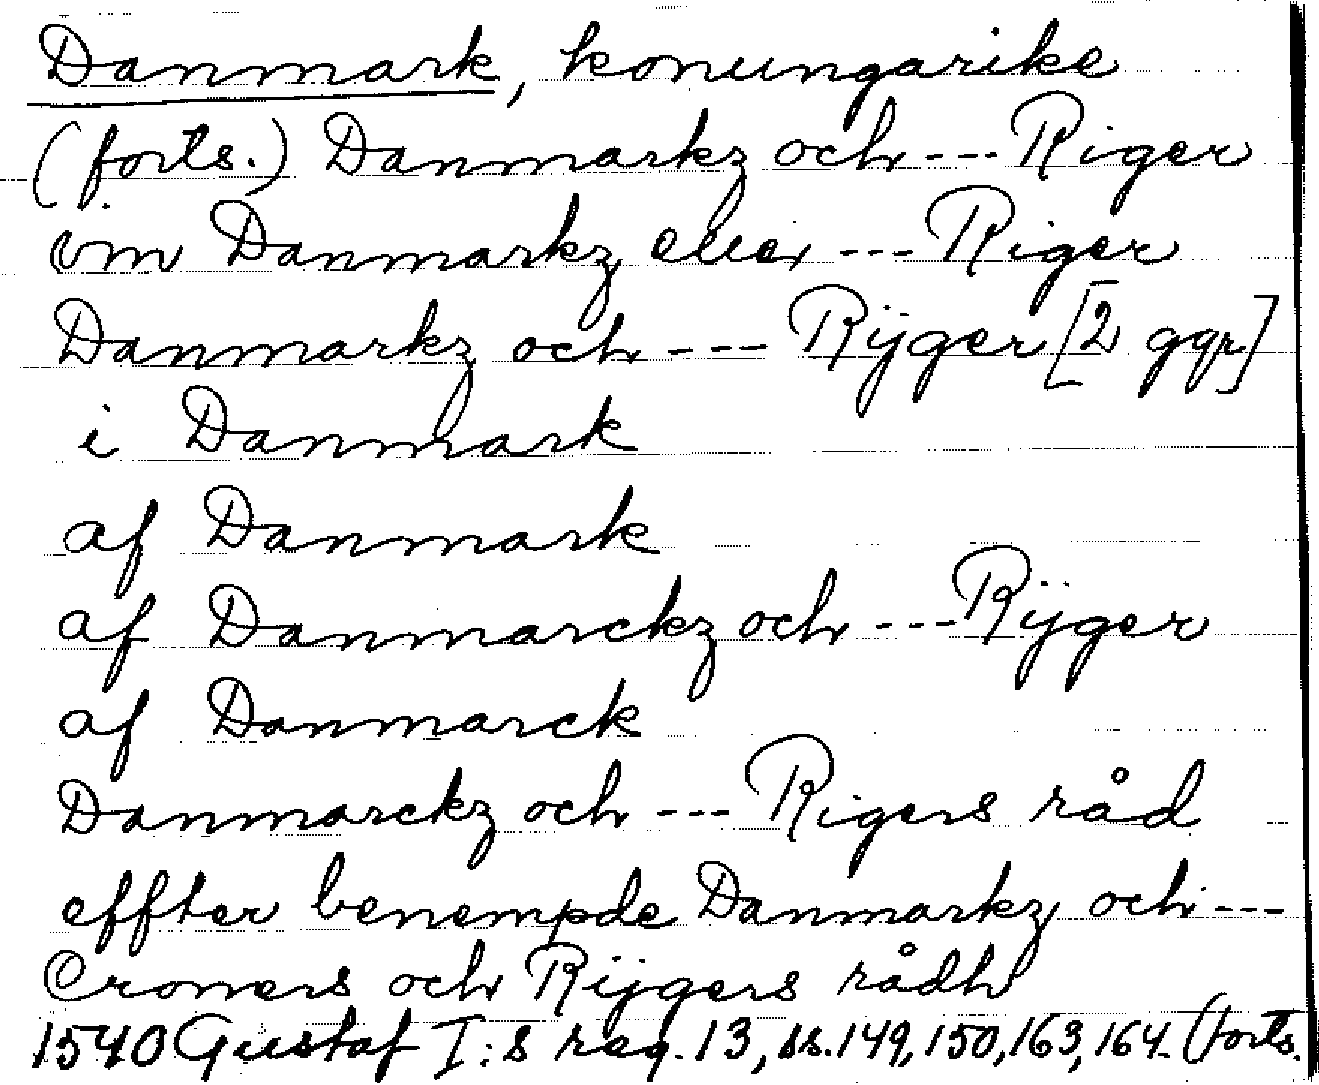 Danmark, konungarike
(forts.) Danmarkz och --- Riger
om Danmarkz eller --- Riger
Danmarkz och --- Rÿger [2 ggr]
i Danmark
af Danmark
af Danmarckz och --- Rÿger
af Danmarck
Danmarckz och --- Rigers råd
effter benempde Danmarkz och ---
Croners och Rÿgers rådh
1540 Gustaf I:s reg. 13, ss. 149, 150, 163, 164. (forts.